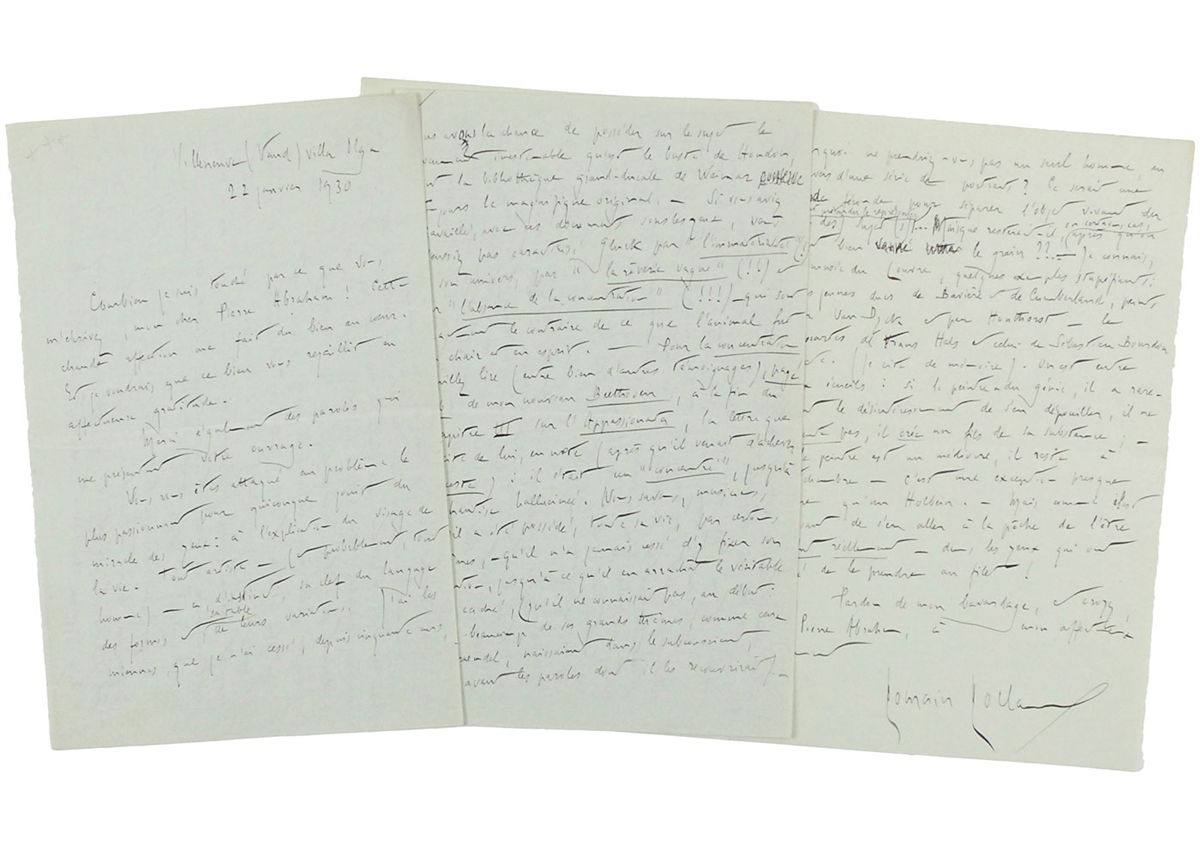 Villeneuve (Vaud) villa Olga
22 janvier 1930
Combien je suis touché par ce que vous
m'écrivez, mon cher Pierre Abraham ! Cette
chaude affection me fait du bien au cœur.
Et je voudrais que ce bien vous rejaillît en
affectueuse gratitude.
Merci également des paroles qui
me présentent votre ouvrage.
Vous vous êtes attaqué au problème le
plus passionnant pour quiconque jouit du
miracle des yeux : à l'explication du visage de
la vie. Tout artiste – (et probablement, tout
homme) – a, d'instinct, sa clef du langage
des formes, et sa table de leurs variations. J'ai les
miennes, que je n'ai cessé, depuis cinquante ans,
avons la chance de posséder sur le sujet le
inestimable qu'est le buste de Houdon,
la bibliothèque grand-ducale de Weimar
le magnifique original. – Si vous aviez
travaillé, avec ces documents sous les yeux, vous
pas caractérisé Gluck par "l'immatérialité" (!
par "la rêverie vague" (!!) et
"l'absence de la concentration" (!!!) – qui sont
le contraire de ce que l'animal fut
chair et en esprit. – Pour la concentration
lire (entre bien d'autres témoignages), page
de mon nouveau Beethoven, à la fin du
chapitre III sur l'Appassionata, la lettre que
de lui, en note (après qu'il venait d'achever
) : il était un "concentré", jusqu'à
hantise hallucinée. Nous savons, musiciens,
il a été possédé, toute sa vie, par certains
– qu'il n'a jamais cessé d'y fixer son
jusqu'à ce qu'il en arrachât le véritable
caché, (qu'il ne connaissait pas, au début :
beaucoup de ses grands thèmes, comme ceux
naissaient dans le subconscient,
avant les paroles dont il les recouvrirait). –
ne prendriez-vous pas un seul homme, au
d'une série de portraits ? Ce serait une
pour séparer l'objet vivant des
des sujets
bien le grain ??– Je connais,
musée du Louvre, quelques exemples stupéfiants :
jeunes ducs de Bavière et de Cumberland, peints
Van Dyck et par Honthorst – le
de Frans Hals et celui de Sébastien Bourdon
(Je cite de mémoire). On est entre
écueils : si le peintre a du génie, il a rare-
le désintéressement de s'en dépouiller, il ne
pas, il crée un fils de sa substance ; –
peintre est un médiocre, il reste à
– c'est une exception presque
qu'un Holbein. – Mais comme c'est
de s'en aller à la pêche de l'être
réellement – dans les yeux qui ont
de le prendre au filet !
Pardon de mon bavardage, et croyez,
Pierre Abraham, à mon affectueux
Romain Rolland